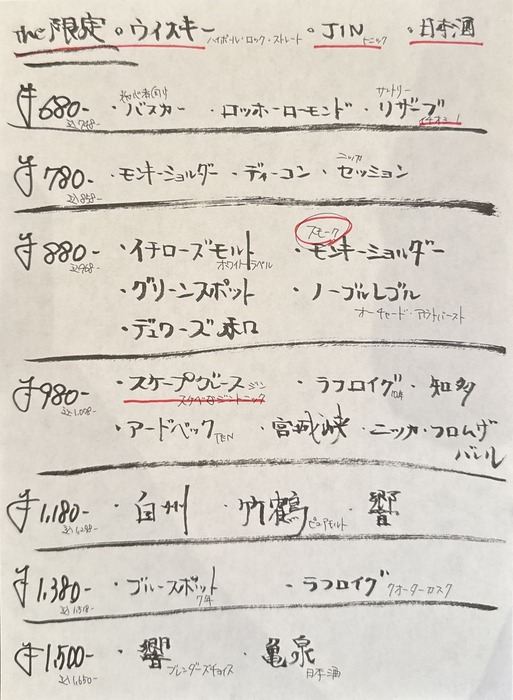 the 限定 。ウイスキー ハイボール・ロック・ストレート 。JIN トニック 。日本酒
¥680- 込748- 初心者向け ・バスカー ・ロッホローモンド ・サントリー リザーブ イチオシ!
¥780- 込858- ・モンキーショルダー ・ディーコン ・ニッカ セッション
¥880- 込968- ・イチローズモルト ホワイトラベル ・スモーク モンキーショルダー
・グリーンスポット ・ノーブルレブル オーチャード・アウトバースト
・デュワーズ
¥980- 込1,078- ・スケープグース ジン ・ラフロイグ 10年 ・知多
スケベなジントニック
・アードベック TEN ・宮城峡 ・ニッカ・フロムザ
バレル
¥1,180- 込1,298- ・白州 ・竹鶴 ピュアモルト ・響
¥1,380- 込1,518- ・ブルースポット 7年 ・ラフロイグ クオーターカスク
¥1,500- 込1,650- ・響 ブレンダーズチョイス ・亀泉 日本酒